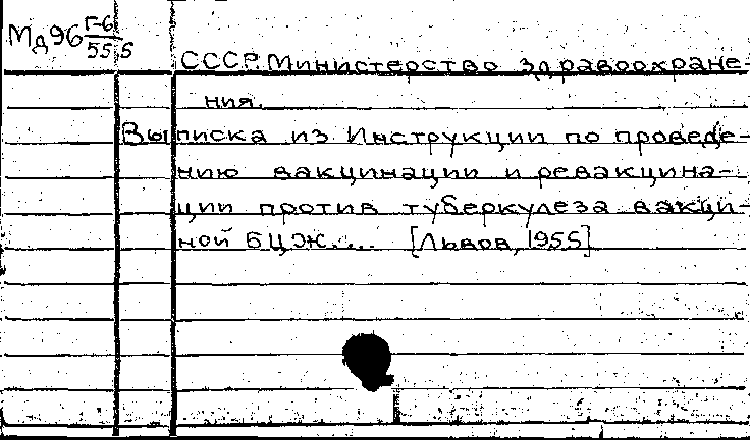 Мд96 Г-6
55 5
СССР. Министерство здравоохране-
ния.
Выписка из Инструкции по проведе-
нию вакцинации и ревакцина-
ции против туберкулеза вакци-
ной БЦЖ.... [Львов, 1955]